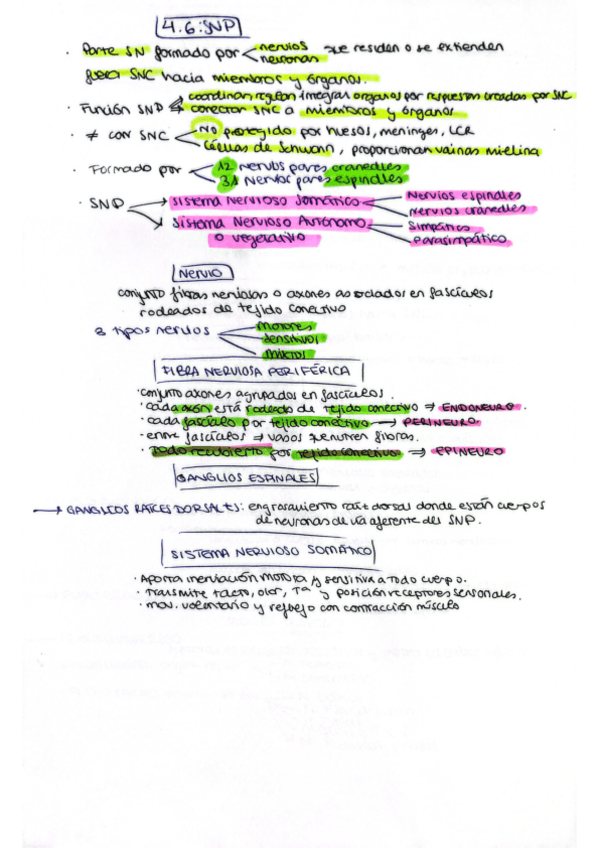 4.6: SNP
· Parte SN formado por nervios neuronas que residen o se extienden
fuera SNC hacia miembros y órganos.
· Función SNP coordinan, regulan, integran órganos por respuestas creadas por SNC
conectar SNC a miembros y órganos
· ≠ con SNC NO protegido por huesos, meninges, LCR
Células de Schwann, proporcionan vainas mielina
· Formado por 12 nervios pares craneales
31 nervios pares espinales
· SNP → Sistema Nervioso Somático Nervios espinales
Nervios craneales
→ Sistema Nervioso Autónomo Simpático
o vegetativo Parasimpático
NERVIO
conjunto fibras nerviosas o axones asociados en fascículos
rodeados de tejido conectivo
3 tipos nervios motores
sensitivos
mixtos
FIBRA NERVIOSA PERIFÉRICA
· conjunto axones agrupados en fascículos.
· cada axón está rodeado de tejido conectivo ⇒ ENDONEURO.
· cada fascículo por tejido conectivo → PERINEURO.
- entre fascículos ⇒ vasos que nutren fibras.
· Todo recubierto por tejido conectivo ⇒ EPINEURO
GANGLIOS ESPINALES
→ GANGLIOS RAÍCES DORSALES: engrosamiento raíz dorsal donde están cuerpos
de neuronas de vía aferente del SNP.
SISTEMA NERVIOSO SOMÁTICO
· Aporta inervación motora y sensitiva a todo cuerpo.
· Transmite tacto, olor, Tª y posición receptores sensoriales.
· mov. voluntario y reflejo con contracción músculo